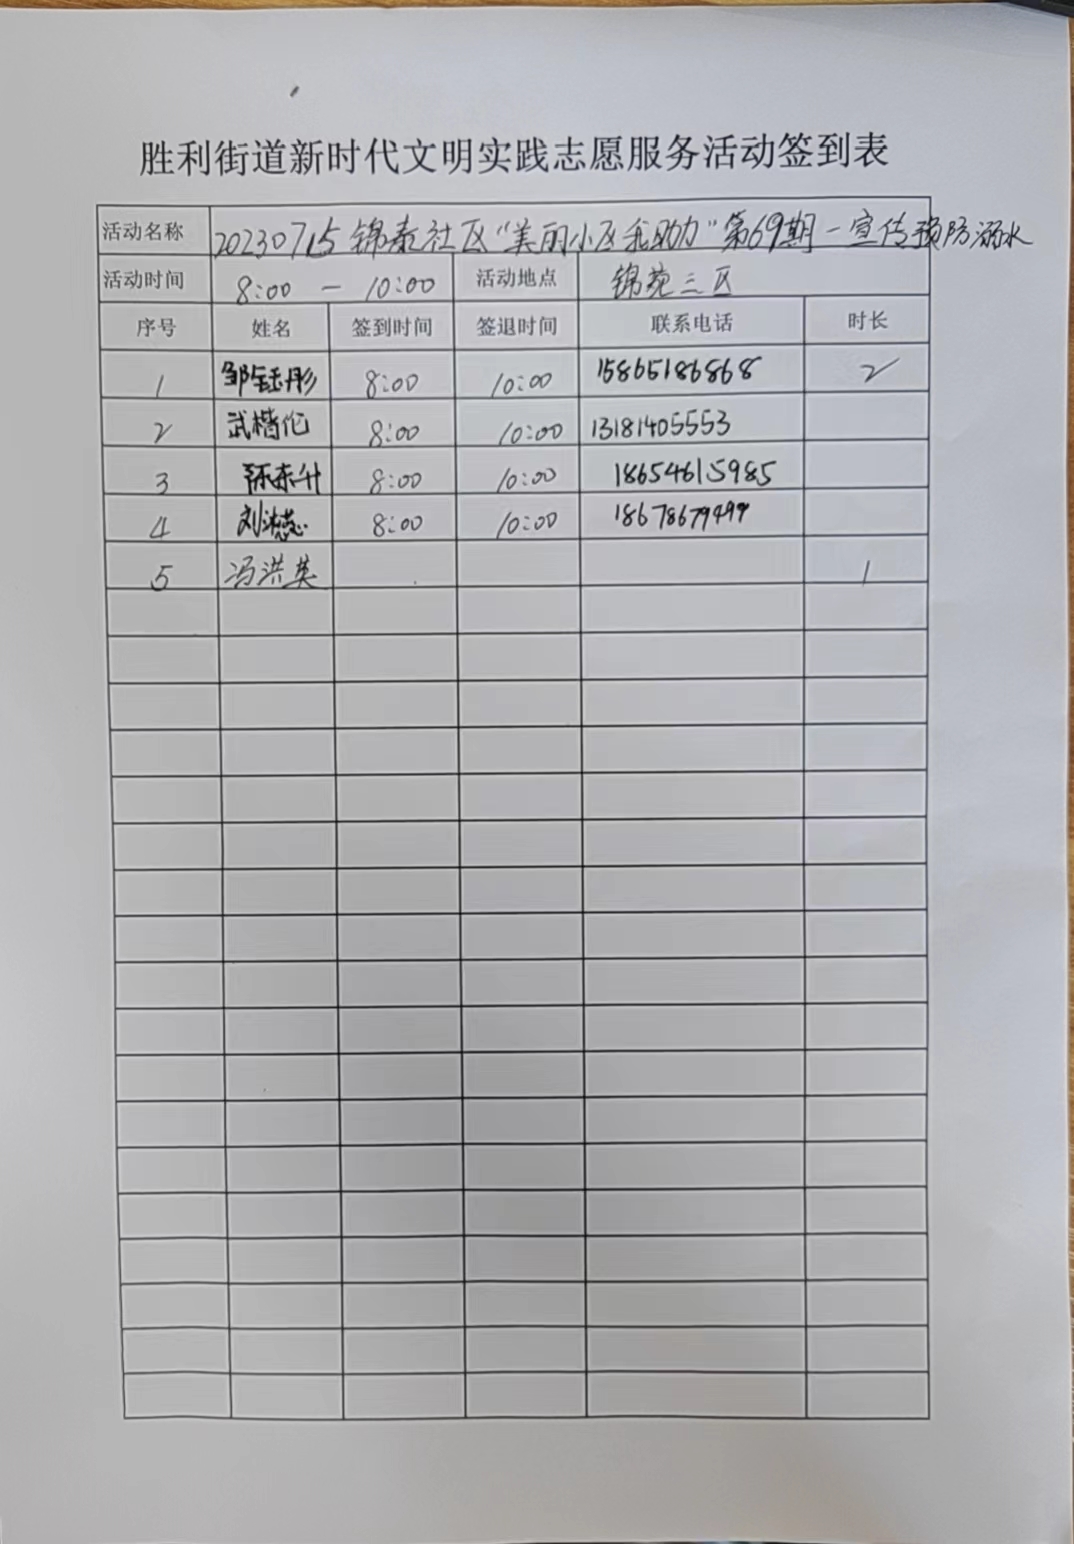 胜利街道新时代文明实践志愿服务活动签到表
活动名称 20230715锦泰社区“美丽小区我助力”第69期-宣传预防溺水
活动时间 8:00 - 10:00 活动地点 锦苑三区
序号 姓名 签到时间 签退时间 联系电话 时长
1 邹钰彤 8:00 10:00 15865186868 2
2 武楷伦 8:00 10:00 13181405553
3 东升 8:00 10:00 18654615985
4 刘 8:00 10:00 18678679499
5 冯洪英 1